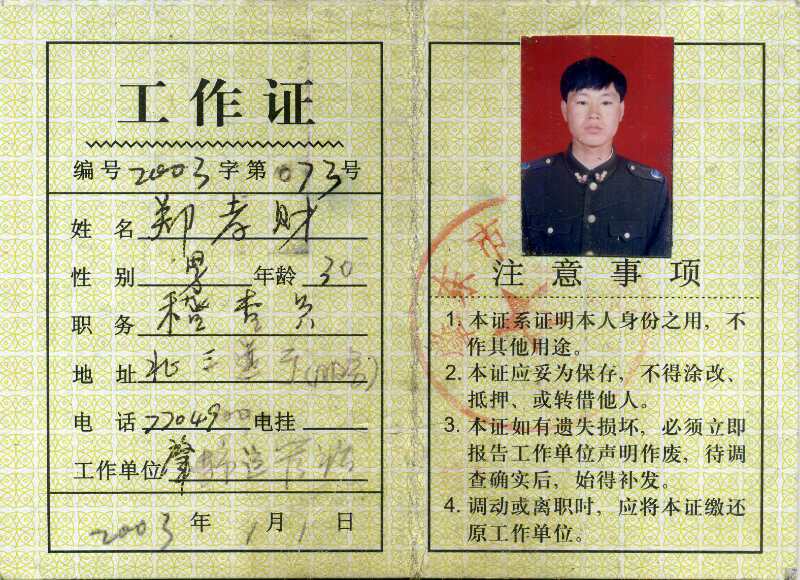 工作证
编号2003字第073号
姓 名 郑孝财
性 别 男 年龄 30
职 务 稽查员
地 址 北三道
电 话 22049 电挂
工作单位 肇
2003年1月1日
东市
注意事项
1. 本证系证明本人身份之用，不
作其他用途。
2. 本证应妥为保存，不得涂改、
抵押、或转借他人。
3. 本证如有遗失损坏，必须立即
报告工作单位声明作废，待调
查确实后，始得补发。
4. 调动或离职时，应将本证缴还
原工作单位。